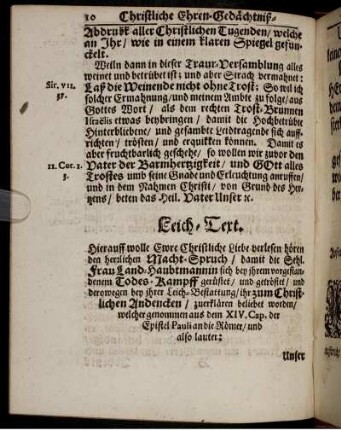 10 Christliche Ehren-Gedächtniß-
Abdruck aller Christlichen Tugenden/ welche
an Ihr/ wie in einem klaren Spiegel gefun-
ckelt.
Weiln dann in dieser Traur-Versamblung alles
weinet und betrübet ist; und aber Sirach vermahnet:
Sir. VII.
Laß die Weinende nicht ohne Trost: So wil ich
solcher Ermahnung/ und meinem Ambte zu folge/ aus
Gottes Wort/ als dem rechten Trost-Brunnen
Israëlis etwas beybringen/ damit die Hochbetrübte
Hinterbliebene/ und gesambte Leidtragende sich auff-
richten/ trösten/ und erquikken können. Damit es
aber fruchtbarlich geschehe/ so wollen wir zuvor den
II. Cor. I.
Vater der Barmhertzigkeit/ und GOtt alles
3.
Trostes umb seine Gnade und Erleuchtung anruffen/
und in dem Nahmen Christi/ von Grund des Her-
tzens/ beten das Heil. Vater Unser ꝛc.
Leich-Text.
Hierauff wolle Ewre Christliche Liebe verlesen hören
den herrlichen Macht-Spruch/ damit die Sehl.
Frau Land-Haubtmannin sich bey ihrem vorgestan-
denem Todes-Kampff gerüstet/ und getröstet/ und
derowegen bey ihrer Leich-Bestattung/ ihr zum Christ-
lichen Andencken/ zuerklären beliebet worden/
welcher genommen aus dem XIV. Cap. der
Epistel Pauli an die Römer/ und
also lautet:
Unser